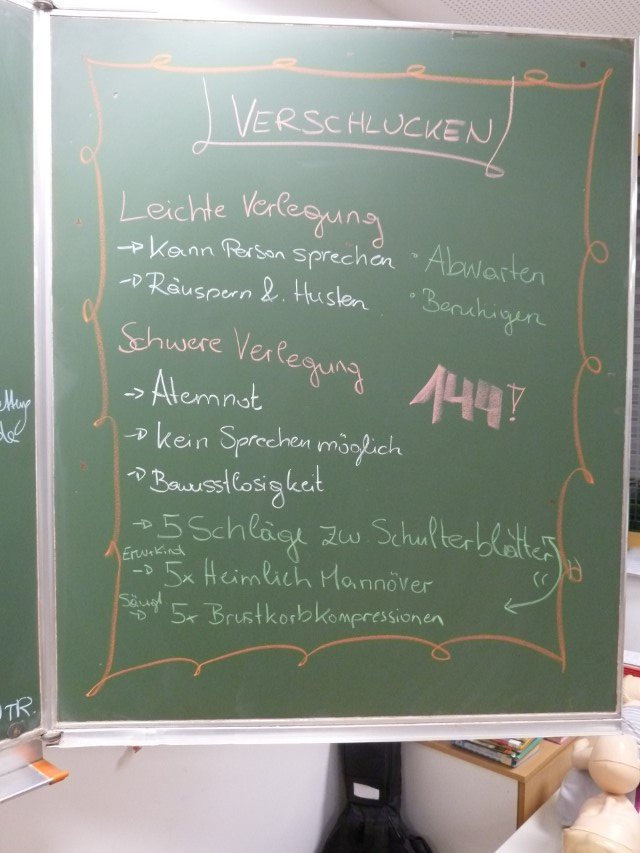 VERSCHLUCKEN
Leichte Verlegung
→ Kann Person sprechen • Abwarten
→ Räuspern &. Husten • Beruhigen
Schwere Verlegung
→ Atemnot
144!
→ kein Sprechen möglich
→ Bewusstlosigkeit
→ 5 Schläge zw. Schulterblätter
Erw.+Kind
→ 5x Heimlich Mannöver
Säugl
→ 5x Brustkorbkompressionen
TR.